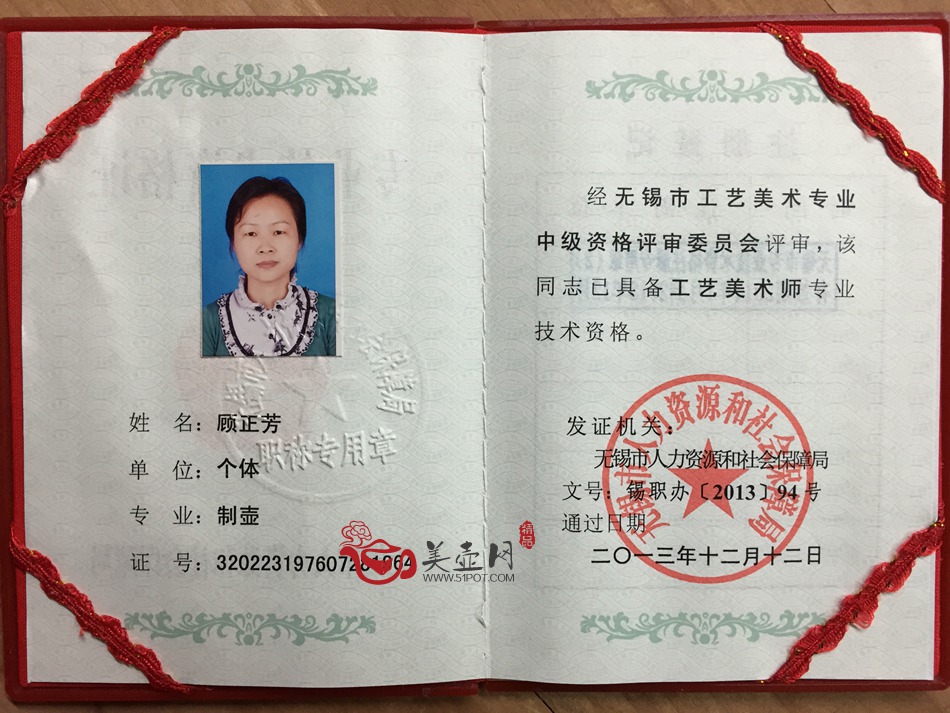 姓 名：顾正芳
单 位：个体
专 业：制壶
证 号：
职称专用章
美壶网
精品
WWW.51POT.COM
经无锡市工艺美术专业
中级资格评审委员会评审，该
同志已具备工艺美术师专业
技术资格。
发证机关：
无锡市人力资源和社会保障局
文号：锡职办〔2013〕94 号
通过日期
二〇一三年十二月十二日
无锡市人力资源和社会保障局